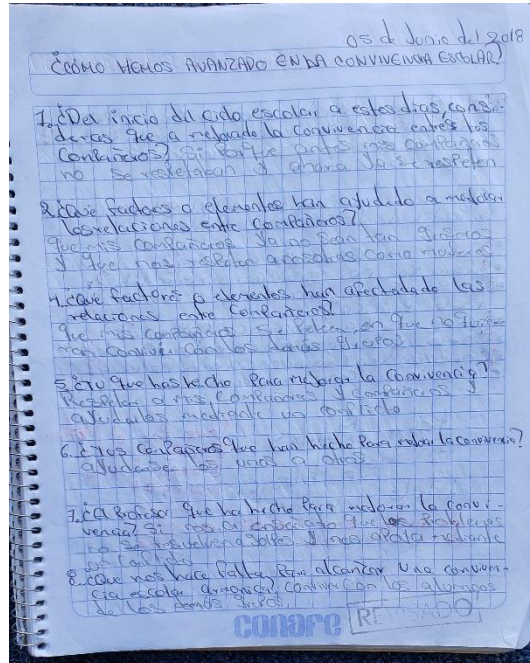 05 de Junio del 2018
¿CÓMO HEMOS AVANZADO EN LA CONVIVENCIA ESCOLAR?
1. ¿Del inicio del ciclo escolar a estos días, consi-
deras que a mejorado la convivencia entre los
compañeros? Si porque antes mis compañeros
no se respetaban y ahora ya se respeten
2. ¿Que factores o elementos han ayudado a mejorar
las relaciones entre compañeros?
que mis compañeros ya no sean tan groseros
y que nos respeten a nosotras como mujeres
4. ¿Que factores o elementos han afectadado las
relaciones entre compañeros?
que mis compañeros se peleen en que no quie-
ran convivir con los demas grupos
5. ¿Tu que has hecho para mejorar la convivencia?
Respetar a mis compañeras y compañeros y
ayudarlos mediante un conflicto
6. ¿Tus compañeros que han hecho para mejorar la convivencia?
ayudarse los unos a otros
7. ¿El profesor que ha hecho para mejorar la convi-
vencia? Si nos a enseñado que los problemas
no se resuelven a golpes y nos apolla mediante
un conflicto
8. ¿Que nos hace falta para alcanzar una conviven-
cia escolar armonica? convivir con los alumnos
de los demas grupos
conafe
REVISADO